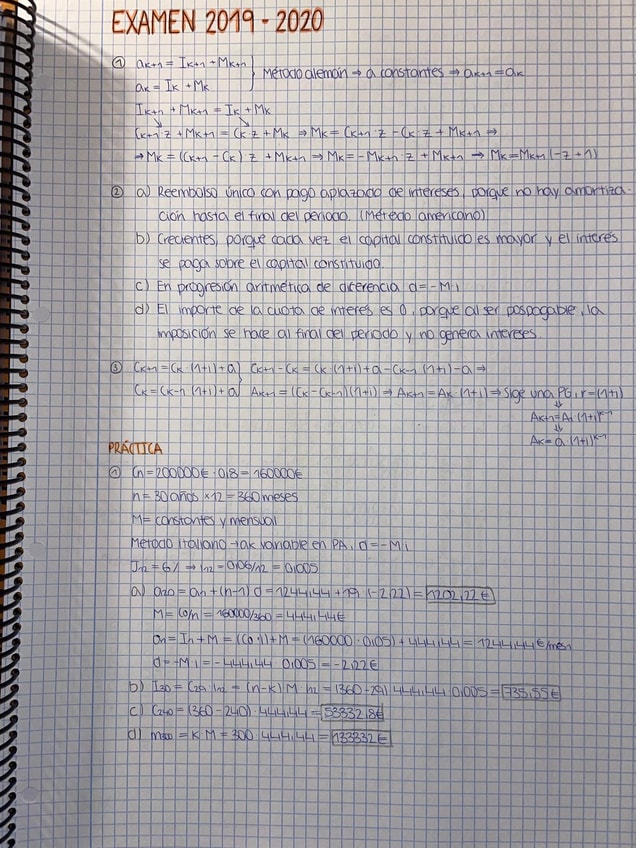 EXAMEN 2019 - 2020
① ak+1 = Ik+1 + Mk+1 } Método alemán → a constantes → ak+1 = ak
ak = Ik + Mk
Ik+1 + Mk+1 = Ik + Mk
Ck+1 · z + Mk+1 = Ck · z + Mk ⇒ Mk = Ck+1 · z - Ck · z + Mk+1 ⇒
⇒ Mk = (Ck+1 - Ck) z + Mk+1 ⇒ Mk = -Mk+1 · z + Mk+1 → Mk = Mk+1 (-z + 1)
② a) Reembolso único con pago aplazado de intereses, porque no hay amortiza-
ción hasta el final del periodo. (Método americano)
b) Crecientes, porque cada vez el capital constituido es mayor y el interés
se paga sobre el capital constituido.
c) En progresión aritmética de diferencia d = -M·i
d) El importe de la cuota de interés es 0, porque al ser pospagable, la
imposición se hace al final del periodo y no genera intereses.
③ Ck+1 = Ck · (1+i) + a } Ck+1 - Ck = Ck · (1+i) + a - Ck-1 (1+i) - a ⇒
Ck = Ck-1 (1+i) + a } Ak+1 = (Ck - Ck-1)(1+i) ⇒ Ak+1 = Ak · (1+i) ⇒ Sige una PG, r = (1+i)
⇓
Ak+1 = A1 (1+i)^k-1
⇓
Ak = a (1+i)^k-1
PRÁCTICA
① Cn = 200000€ · 0,8 = 160000€
n = 30 años × 12 = 360 meses
M = constantes y mensual
Método italiano → ak variable en PA, d = -M·i
J12 = 6% → i12 = 0,06/12 = 0,005
a) a20 = a1 + (n-1) d = 1244,44 + 19 · (-2,22) = 1202,22€
M = C0/n = 160000/360 = 444,44€
a1 = I1 + M = (C0 · i) + M = (160000 · 0,05) + 444,44 = 1244,44€/mes
d = -M·i = -444,44 · 0,005 = -2,22€
b) I30 = C29 · i12 = (n-k) M · i12 = (360-29) · 444,44 · 0,005 = 735,55€
c) C240 = (360 - 240) · 444,44 = 53332,8€
d) m300 = K · M = 300 · 444,44 = 133332€